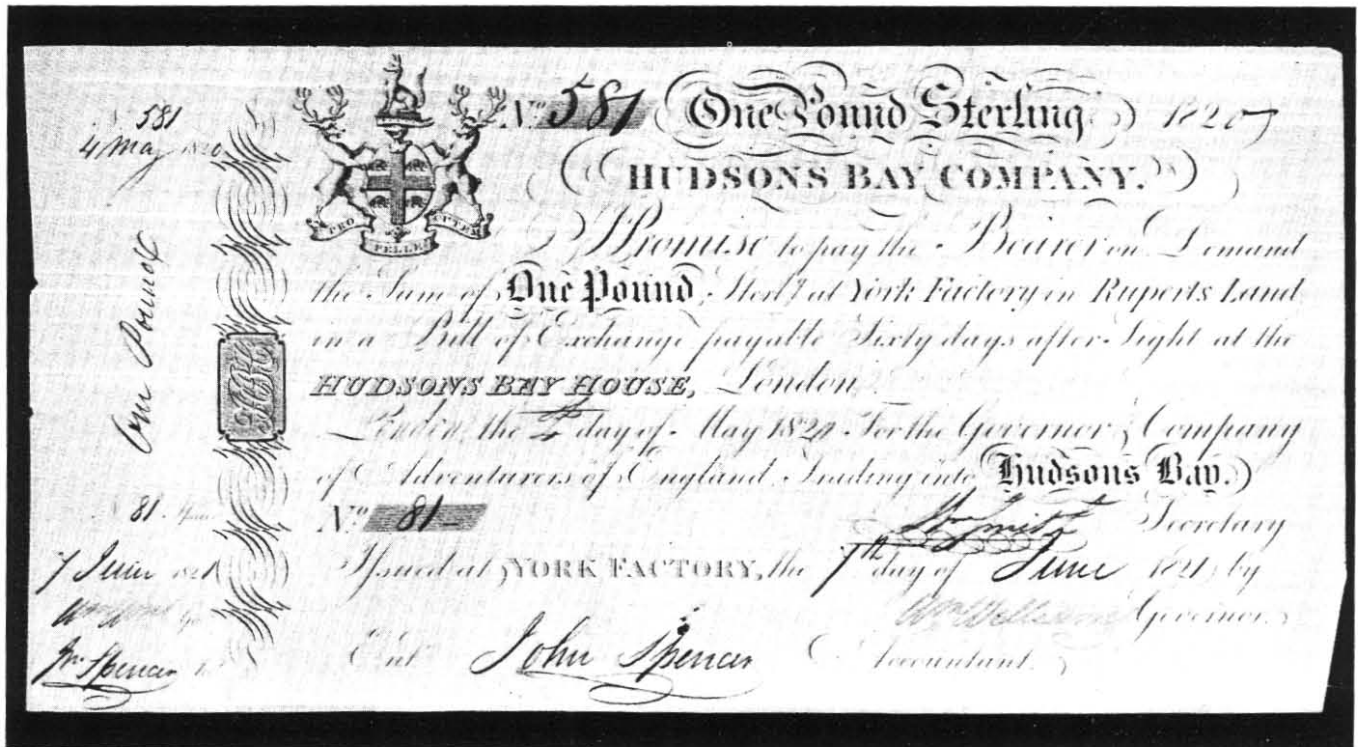 581
4 May 1820
One Pound
81
7 June 1821
Jn Spencer
HBC
PRO PELLE CUTEM
No. 581 One Pound Sterling 1820
HUDSONS BAY COMPANY.
I Promise to pay the Bearer on Demand
the Sum of One Pound Sterlg at York Factory in Ruperts Land
in a Bill of Exchange payable Sixty days after Sight at the
HUDSONS BAY HOUSE, London.
London, the 4th day of May 1820 For the Governor & Company
of Adventurers of England Trading into Hudsons Bay.
No. 81
Wm Smith Secretary
Issued at YORK FACTORY, the 7th day of June 1821 by
Wm Williams Governor
Entd John Spencer Accountant.